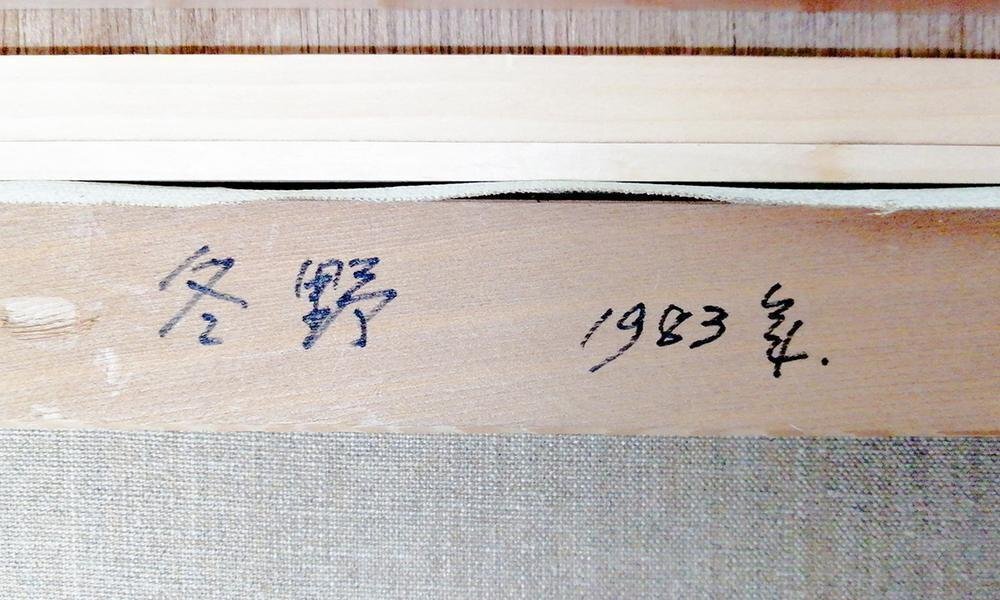 冬野 1983年.